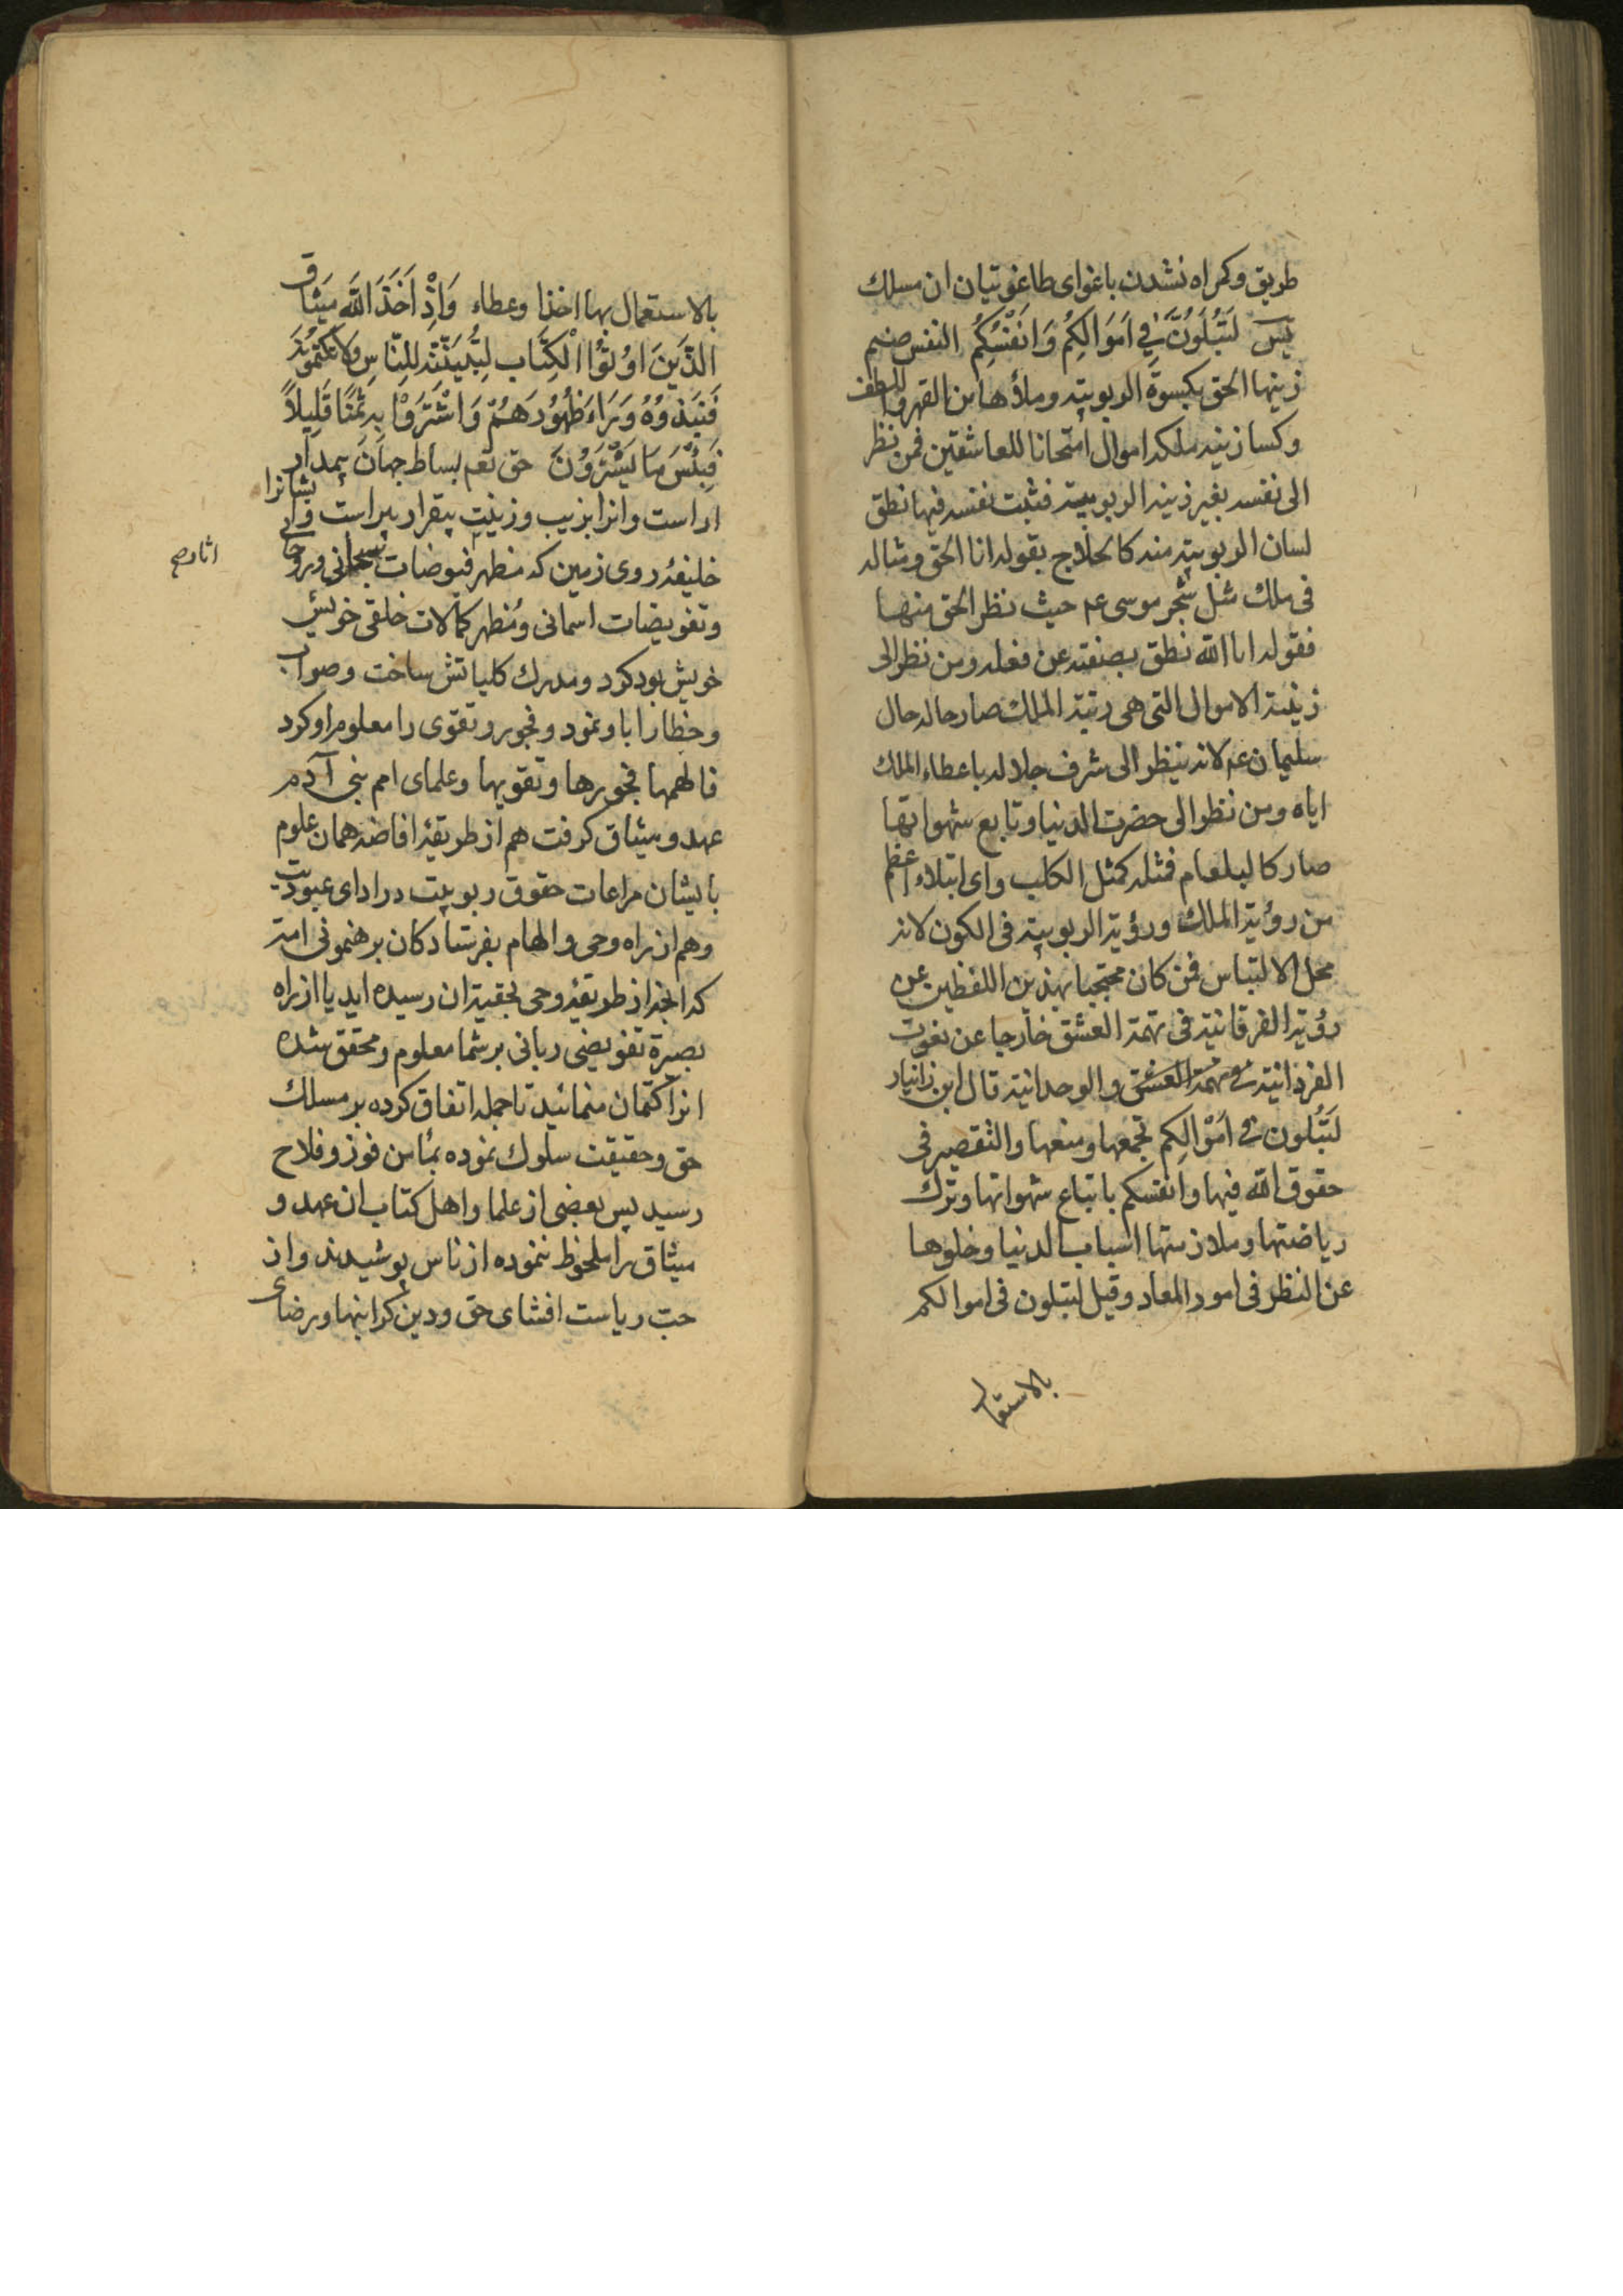 طریق وکمراه نشدن باغوای طاغوتیان ان مسلك
یس لَتُبْلَوُنَّ فِي اَمْوَالِكُم وَاَنفُسِكُم النفس صنم
زینها الحق بکسوة الربوبیته وملأها من القهر واللطف
وکسا زینه ملکه اموال امتحانا للعاشقین فمن نظر
الی نفسه بغیر زینه الربوبیته فثبت نفسه فیها نطق
لسان الربوبیته منه کالحلاج بقوله انا الحق ومثاله
فی ملك مثل شجر موسی عم حیث نظر الحق منها
فقوله انا الله نطق بصفته عن فعله ومن نظر الی
زینة الاموال التی هی رتبة الملك صار حاله حال
سلیمان عم لانه ینظر الی شرف جلاله باعطاء الملك
ایاه ومن نظر الی حضرت الدنیا وتابع شهواتها
صار کالبلعام فمثله کمثل الکلب وای ابتلاء اعظم
من رؤیة الملك ورؤیة الربوبیته فی الکون لانه
محل الالتباس فمن کان محتجبا بهذین اللفظین عن
رؤیة الفرقانیة فی تهمة العشق خارجا عن نعوت
الفردانیة فی مهمة العشق والوحدانیة قال ابن زانیار
لَتُبْلَون فی اَمْوَالِكم بجمعها ومنعها والتقصیر فی
حقوق الله فیها وانفسکم باتباع شهواتها وترك
ریاضتها وملازمتها اسباب الدنیا وخلوها
عن النظر فی امور المعاد وقیل لتبلون فی اموالکم
بالاستعمال
بالاستعمال بها اخذا وعطاء وَاِذْ اَخَذَ اللّٰهُ مِيثَاقَ
الَّذِينَ اُوتُوا الْكِتَابَ لِتُبَيِّنُنَّهُ لِلنَّاسِ وَلَا تَكْتُمُونَهُ
فَنَبَذُوهُ وَرَاءَ ظُهُورِهِمْ وَاشْتَرَوْا بِهِ ثَمَنًا قَلِيلًا
فَبِئْسَ مَا يَشْتَرُوْنَ حق تعم بساط جهان بیمدار
اراست وانرا بزیب وزینت بیقرار پیراست وایشانرا
خلیفهٔ روی زمین که مظهر فیوضات سبحانی وروحانی
وتفویضات اسمانی ومُظهر کمالات خلقی خویش
خویش بود کرد ومدرك کلیاتش ساخت وصواب
وخطا را با ونمود وفجور وتقوی را معلوم او کرد
فالهمها فجورها وتقویها وعلمای امم بنی آدم
عهد ومیثاق کرفت هم از طریقهٔ افاضه همان علوم
بایشان مراعات حقوق ربوبیت در ادای عبودیت
وهم از راه وحی والهام بفرستادکان برهنمونی امته
که انچه از طریقهٔ وحی بحقیة ان رسیده اید یا از راه
بصیرة تفویضی ربانی بر شما معلوم ومحقق شده
انرا کتمان منمائید تا جمله اتفاق کرده بر مسلك
حق وحقیقت سلوك نموده بمأمن فوز وفلاح
رسید پس بعضی از علما واهل کتاب ان عهد و
میثاق را ملحوظ ننموده از ناس پوشیدند واز
حب ریاست افشای حق ودین کرانبها ورضای